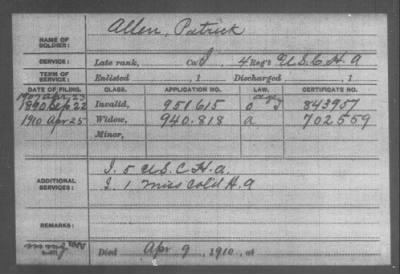 NAME OF SOLDIER: Allen, Patrick
SERVICE: Late rank, Co. I, 4 Reg't U.S.C.H.A
TERM OF SERVICE: Enlisted , 1 Discharged , 1
DATE OF FILING. CLASS. APPLICATION NO. LAW. CERTIFICATE NO.
1907 Apr. 23
1890 Sep 22 Invalid, 951615 843957
1910 Apr 25 Widow, 940.818 a 702559
Minor,
ADDITIONAL SERVICES: I. 5 U.S.C.H.A.
I. 1 Miss Col'd H.A
REMARKS:
Died Apr 9, 1910, at